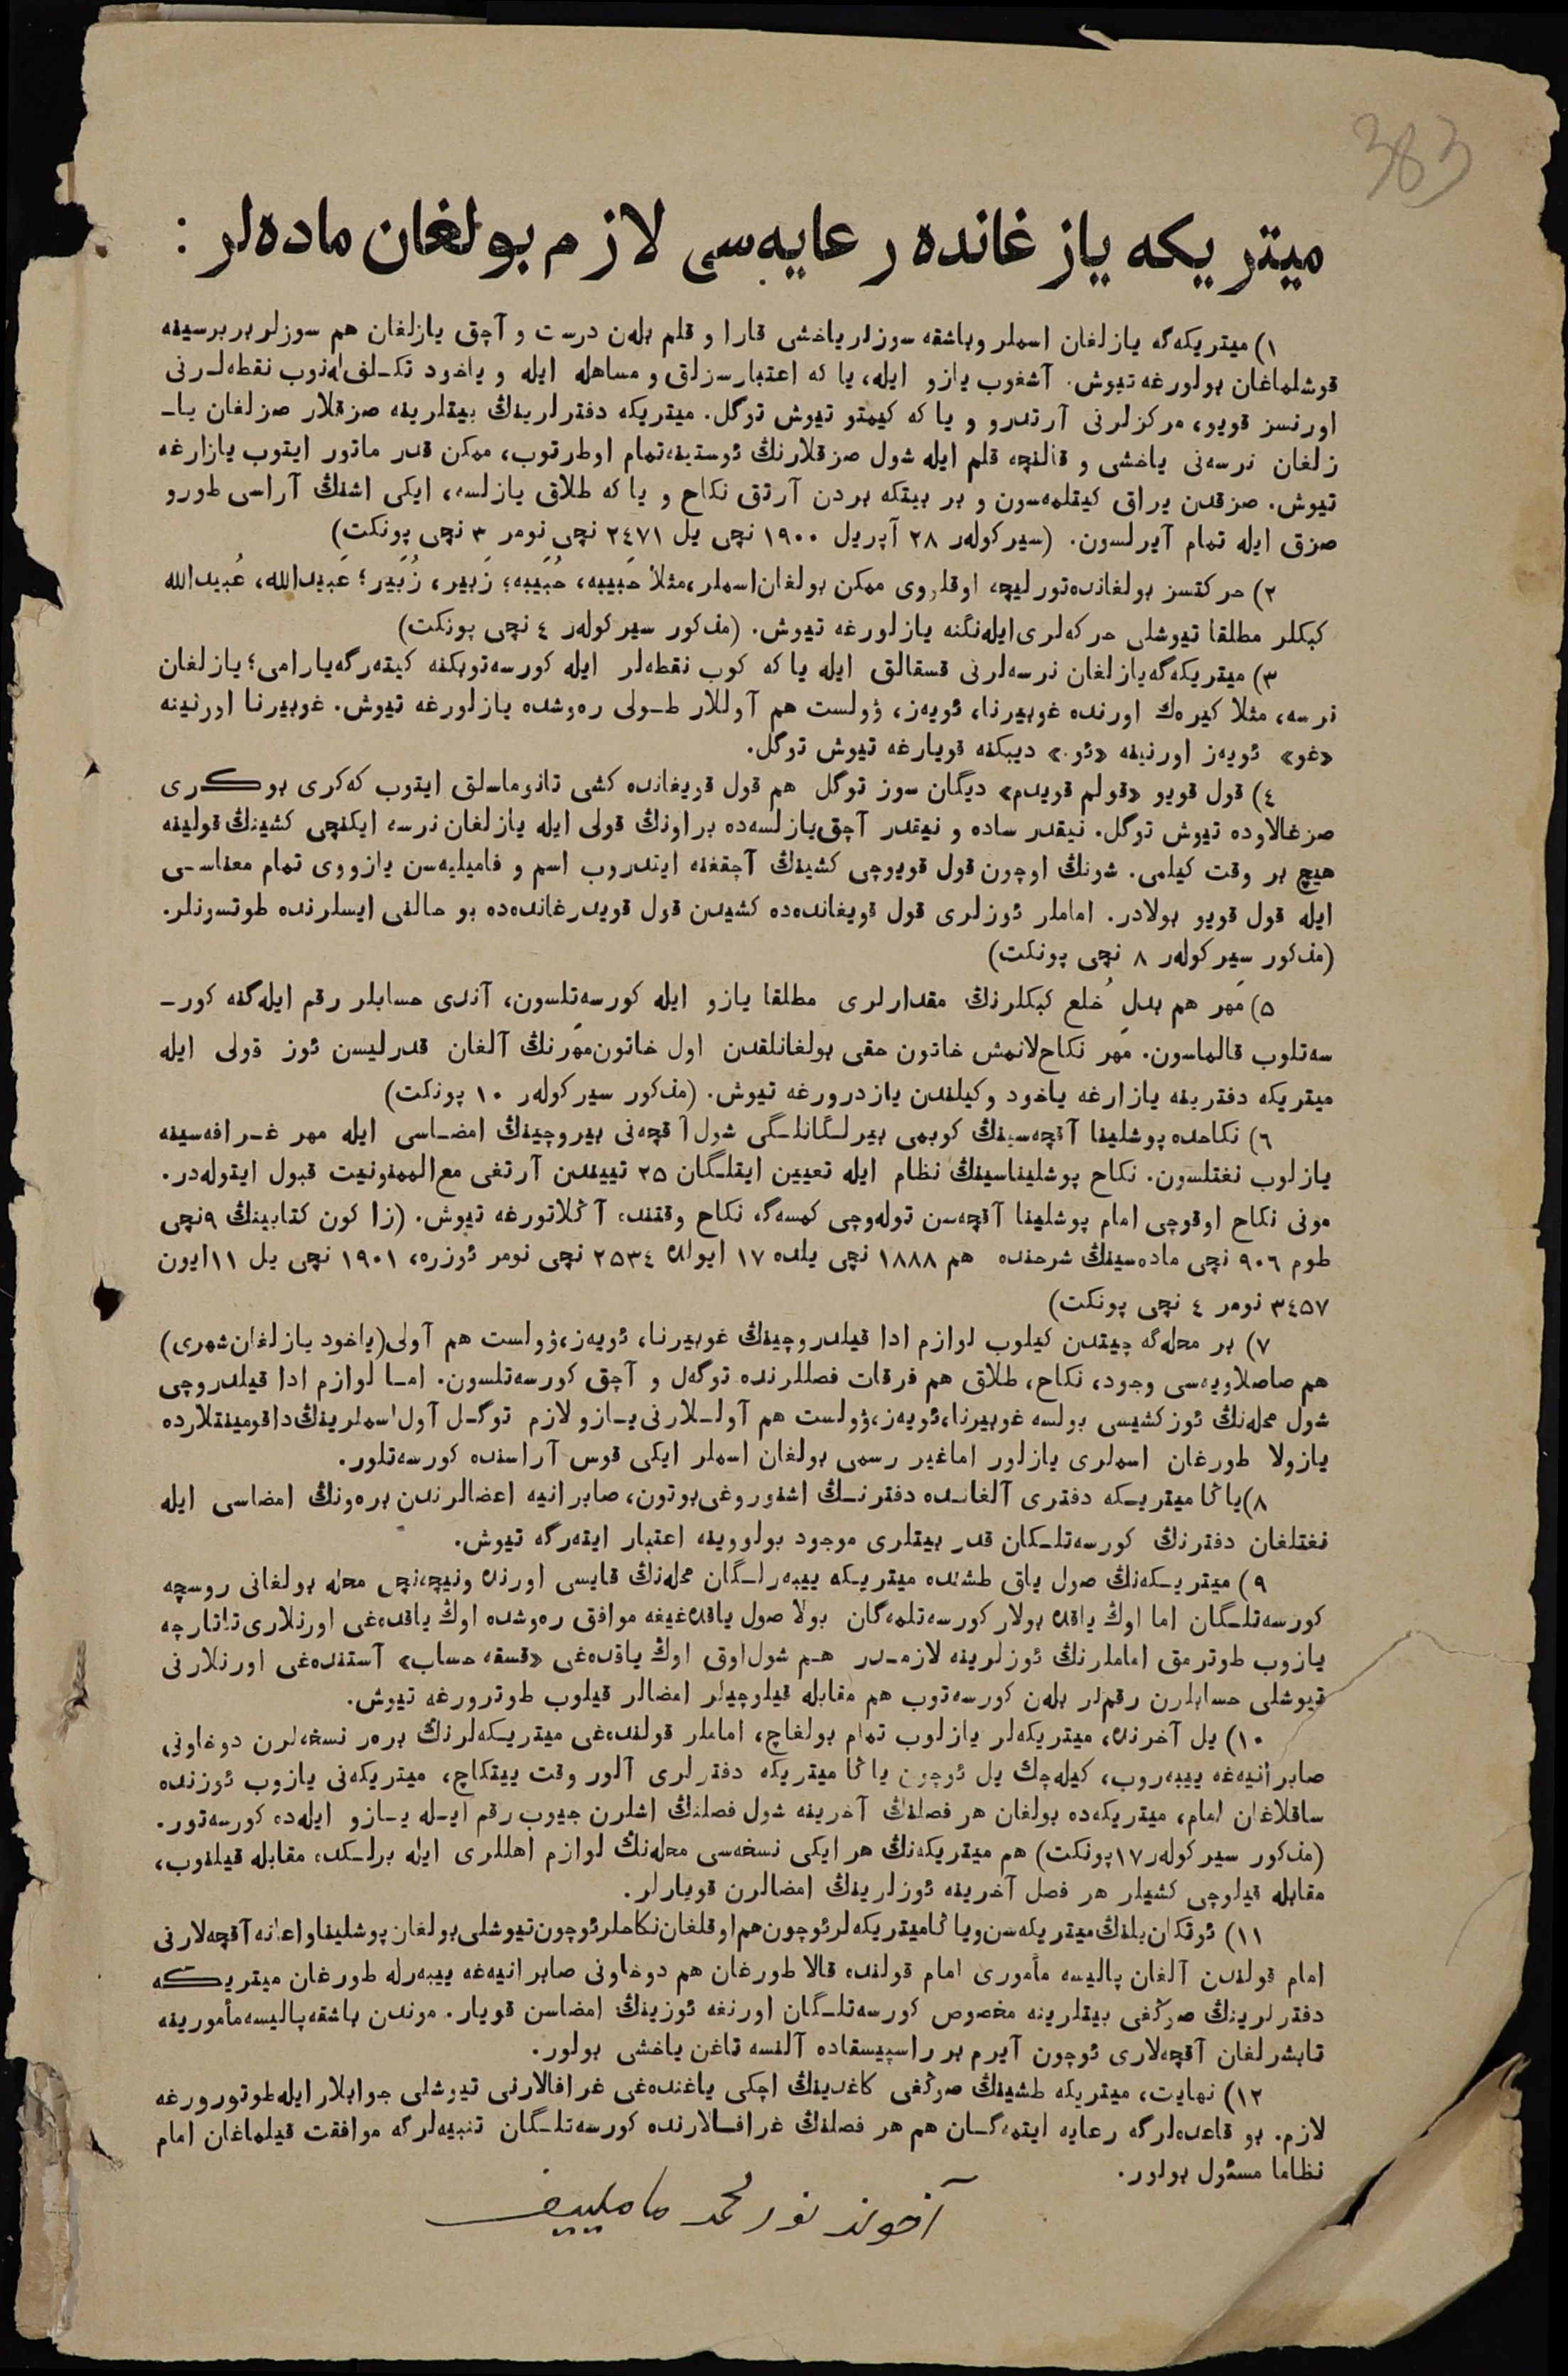 383
میتریکه یازغانده رعایه‌سی لازم بولغان ماده‌لر :
١) میتریکه‌گه یازلغان اسملر وباشقه سوزلر یاخشی قارا و قلم بله‌ن درست و آچق یازلغان هم سوزلر بربرسینه
قوشلماغان بولورغه تیوش. آشغوب یازو ایله، یا که اعتبارسزلق و مساهله ایله و یاخود تکلف‌له‌نوب نقطه‌لرنی
اورنسز قویو، مرکزلرنی آرتدرو و یا که کیمتو تیوش توگل. میتریکه دفترلرینڭ بیتلرینه صزقلار صزلغان یا۔
زلغان نرسه‌نی یاخشی و قالنچه قلم ایله شول صزقلارنڭ ئوستینه‌تمام اوطرتوب، ممکن قدر ماتور ایتوب یازارغه
تیوش. صزقدن یراق کیتلمه‌سون و بر بیتکه بردن آرتق نکاح و یا که طلاق یازلسه، ایکی اشنڭ آراسی طورو
صزق ایله تمام آیرلسون. (سیرکوله‌ر ٢٨ آپریل ١٩٠٠ نچی یل ٢٤٧١ نچی نومر ٣ نچی پونکت)
٢) حرکتسز بولغانده‌تورلیچه اوقلووی ممکن بولغان‌اسملر،مثلا حَبیبه، حُبَیبه؛ زَبیر، زُبَیر؛ عَبیدالله، عُبیدالله
کبکلر مطلقا تیوشلی حرکه‌لری‌ایله‌نگنه یازلورغه تیوش. (مذکور سیرکوله‌ر ٤ نچی پونکت)
٣) میتریکه‌گه‌یازلغان نرسه‌لرنی قسقالق ایله یا که کوب نقطه‌لر ایله کورسه‌توبکنه کیته‌رگه‌یارامی؛ یازلغان
نرسه، مثلا کیره‌ك اورنده غوبیرنا، ئویه‌ز، ؤولست هم آوللار طولی ره‌وشده یازلورغه تیوش. غوبیرنا اورنینه
«غو» ئویه‌ز اورنینه «ئو.» دیبکنه قویارغه تیوش توگل.
٤) قول قویو «قولم قویدم» دیگان سوز توگل هم قول قویغانده کشی تانوماسلق ایتوب که‌کری بوکری
صزغالاوده تیوش توگل. نیقدر ساده و نیقدر آچق‌یازلسه‌ده براونڭ قولی ایله یازلغان نرسه ایکنچی کشینڭ قولینه
هیچ بر وقت کیلمی. شونڭ اوچون قول قویوچی کشینڭ آچقغنه ایتدروب اسم و فامیلیه‌سن یازووی تمام معناسی
ایله قول قویو بولادر. اماملر ئوزلری قول قویغانده‌ده کشیدن قول قویدرغانده‌ده بو حالنی ایسلرنده طوتسونلر.
(مذکور سیرکوله‌ر ٨ نچی پونکت)
٥) مَهر هم بدلِ خُلع کبکلرنڭ مقدارلری مطلقا یازو ایله کورسه‌تلسون، آندی حسابلر رقم ایله‌گنه کور۔
سه‌تلوب قالماسون. مَهر نکاح‌لانمش خاتون حقی بولغانلقدن اول خاتون‌مهرنڭ آلغان قدرلیسن ئوز قولی ایله
میتریکه دفترینه یازارغه یاخود وکیلندن یازدرورغه تیوش. (مذکور سیرکوله‌ر ١٠ پونکت)
٦) نکاحده پوشلینا آقچه‌سینڭ کوبمی بیرلگانلگی شول آقچه‌نی بیروچینڭ امضاسی ایله مهر غرافه‌سینه
یازلوب نغتلسون. نکاح پوشلیناسینڭ نظام ایله تعیین ایتلگان ٢٥ تییندن آرتغی مع‌الممنونیت قبول ایتوله‌در.
مونی نکاح اوقوچی امام پوشلینا آقچه‌سن توله‌وچی کمسه‌گه نکاح وقتنده آڭلاتورغه تیوش. (زاکون کتابینڭ ٩نچی
طوم ٩٠٦ نچی ماده‌سینڭ شرحنده هم ١٨٨٨ نچی یلده ١٧ ایولده ٢٥٣٤ نچی نومر ئوزره، ١٩٠١ نچی یل ١١ایون
٣٤٥٧ نومر ٤ نچی پونکت)
٧) بر محله‌گه چیتدن کیلوب لوازم ادا قیلدروچینڭ غوبیرنا، ئویه‌ز،ؤولست هم آولی(یاخود یازلغان‌شهری)
هم صاصلاویه‌سی وجود، نکاح، طلاق هم فرقات فصللرنده توگه‌ل و آچق کورسه‌تلسون. اما لوازم ادا قیلدروچی
شول محله‌نڭ ئوزکشیسی بولسه غوبیرنا،ئویه‌ز،ؤولست هم آوللارنی یازو لازم توگل آول اسملرینڭ‌داقومینتلارده
یازولا طورغان اسملری یازلور اماغیر رسمی بولغان اسملر ایکی قوس آراسنده کورسه‌تلور.
٨)یاڭا میتریکه دفتری آلغانده دفترنڭ اشنوروغی‌بوتون، صابرانیه اعضالرندن بره‌ونڭ امضاسی ایله
نغتلغان دفترنڭ کورسه‌تلگان قدر بیتلری موجود بولووینه اعتبار ایته‌رگه تیوش.
٩) میتریکه‌نڭ صول یاق طشنده میتریکه ییبه‌رلگان محله‌نڭ قایسی اورنده ونیچه‌نچی محله بولغانی روسچه
کورسه‌تلگان اما اوڭ یاقده بولار کورسه‌تلمه‌گان بولا صول یاقده‌غیغه موافق ره‌وشده اوڭ یاقده‌غی اورنلاری‌تاتارچه
یازوب طوترمق اماملرنڭ ئوزلرینه لازمدر هم شول‌اوق اوڭ یاقده‌غی «قسقه حساب» آستنده‌غی اورنلارنی
تیوشلی حسابلرن رقملر بله‌ن کورسه‌توب هم مقابله قیلوچیلر امضالر قیلوب طوترورغه تیوش.
١٠) یل آخرنده، میتریکه‌لر یازلوب تمام بولغاچ، اماملر قولنده‌غی میتریکه‌لرنڭ بره‌ر نسخه‌لرن دوخاونی
صابرانیه‌غه ییبه‌روب، کیله‌چك یل ئوچون یاڭا میتریکه دفترلری آلور وقت ییتکاچ، میتریکه‌نی یازوب ئوزنده
ساقلاغان امام، میتریکه‌ده بولغان هر فصلنڭ آخرینه شول فصلنڭ اشلرن جیوب رقم ایله یازو ایله‌ده کورسه‌تور.
(مذکور سیرکوله‌ر١٧پونکت) هم میتریکه‌نڭ هر ایکی نسخه‌سی محله‌نڭ لوازم اهللری ایله برلکده مقابله قیلنوب،
مقابله قیلوچی کشیلر هر فصل آخرینه ئوزلرینڭ امضالرن قویارلر.
١١) ئوتکان‌یلنڭ‌میتریکه‌سن‌ویاڭامیتریکه‌لرئوچون‌هم‌اوقلغان‌نکاحلرئوچون‌تیوشلی‌بولغان‌پوشلیناواعانه‌آقچه‌لارنی
امام قولندن آلغان پالیسه مأموری امام قولنده قالا طورغان هم دوخاونی صابرانیه‌غه ییبه‌رله طورغان میتریکه
دفترلرینڭ صوڭغی بیتلرینه مخصوص کورسه‌تلگان اورنغه ئوزینڭ امضاسن قویار. موندن باشقه‌پالیسه‌مأمورینه
تابشرلغان آقچه‌لاری ئوچون آیرم بر راسپیسقاده آلنسه تاغن یاخشی بولور.
١٢) نهایت، میتریکه طشینڭ صوڭغی کاغدینڭ اچکی یاغنده‌غی غرافالارنی تیوشلی جوابلار ایله‌طوتورورغه
لازم. بو قاعده‌لرگه رعایه ایتمه‌گان هم هر فصلنڭ غرافالارنده کورسه‌تلگان تنبیه‌لرگه موافقت قیلماغان امام
نظاما مسئول بولور.
آخوند نورمحمد ماملییف